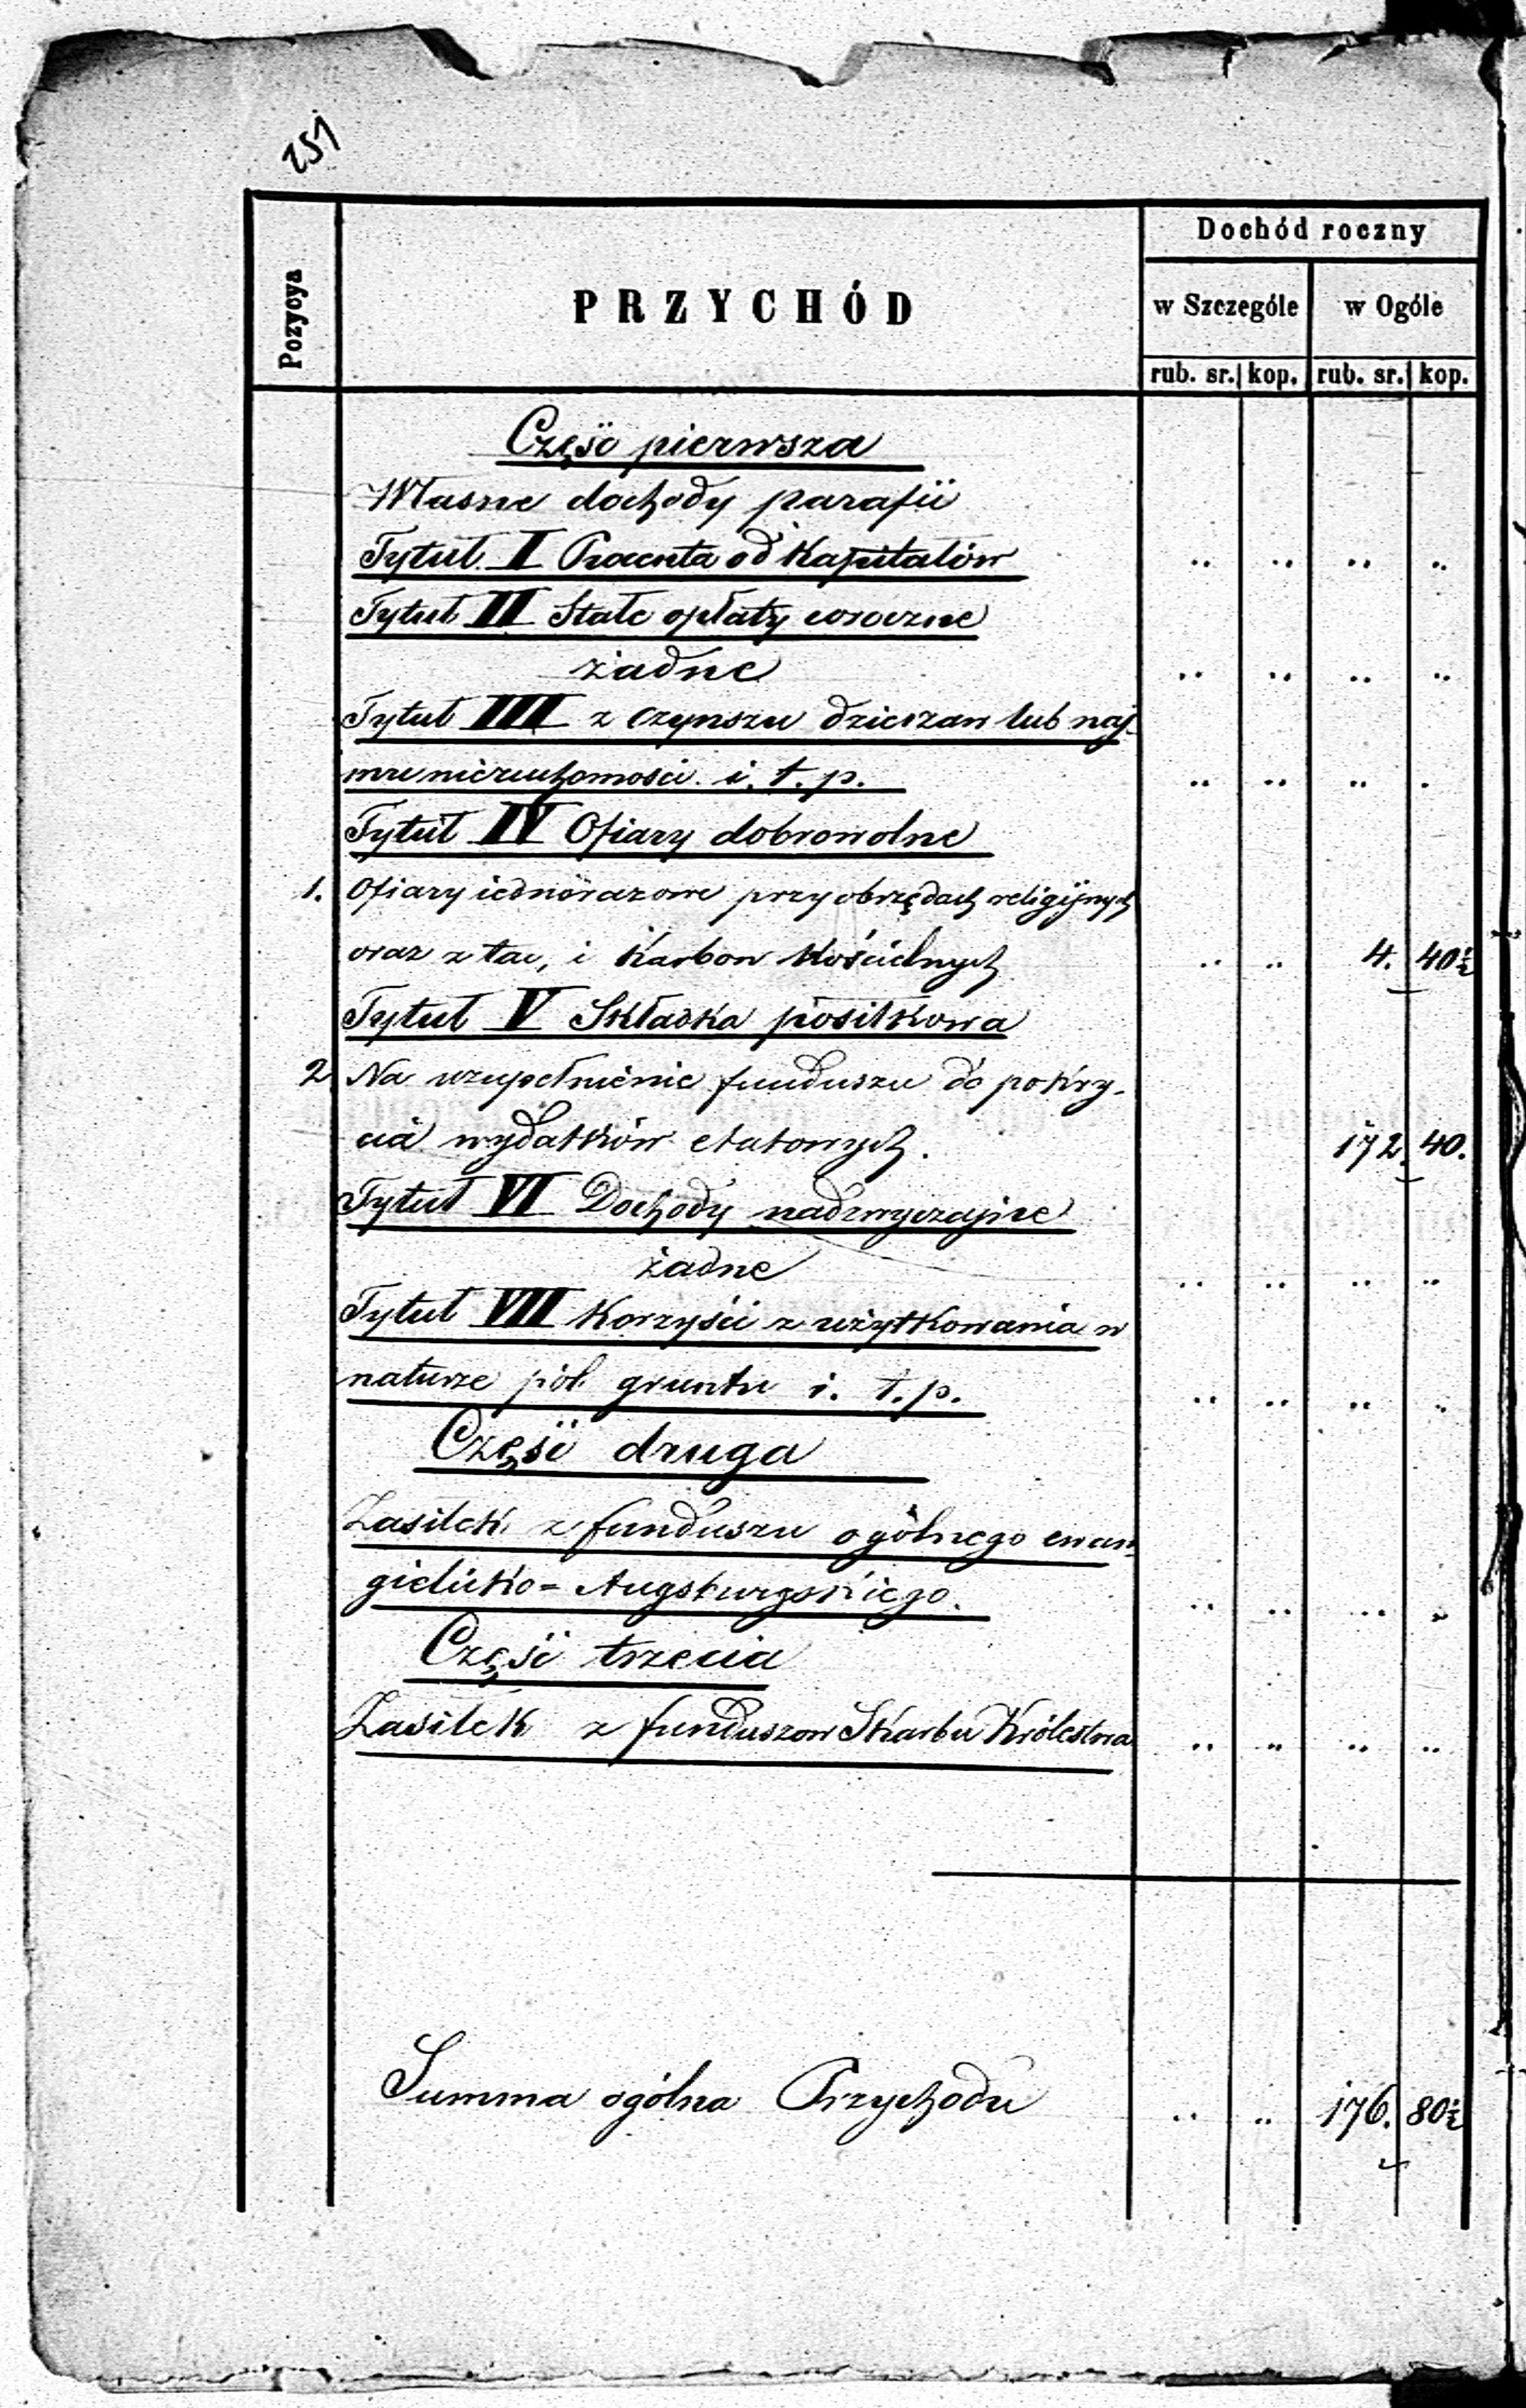 251
Pozycya
PRZYCHÓD
Dochód roczny
w Szczególe
w Ogóle
rub. sr. kop. rub. sr. kop.
Część pierwsza
Własne dochody parafii
Tytuł I Procenta od Kapitałów .. .. .. ..
Tytuł II Stałe opłaty coroczne
żadne .. .. .. ..
Tytuł III z czynszu dzierzaw lub naj-
mu nieruchomości i. t. p. .. .. .. .
Tytuł IV Ofiary dobrowolne
1. Ofiary iednorazowe przy obrzędach religijnych
oraz z tac, i Karbon Kościelnych .. .. 4. 40½
Tytuł V Składka posiłkowa
2 Na uzupełnienie funduszu do pokry-
cia wydatków etatowych. 172. 40.
Tytuł VI Dochody nadzwyczajne
żadne .. .. .. ..
Tytuł VII Korzyści z użytkowania w
naturze pól gruntu i. t. p. .. .. .. ..
Część druga
Zasiłek z funduszu ogólnego ewan-
gielicko=Augsburgskiego. .. .. .. ..
Część trzecia
Zasiłek z funduszow Skarbu Królestwa .. .. .. ..
Summa ogólna Przychodu .. .. 176. 80½